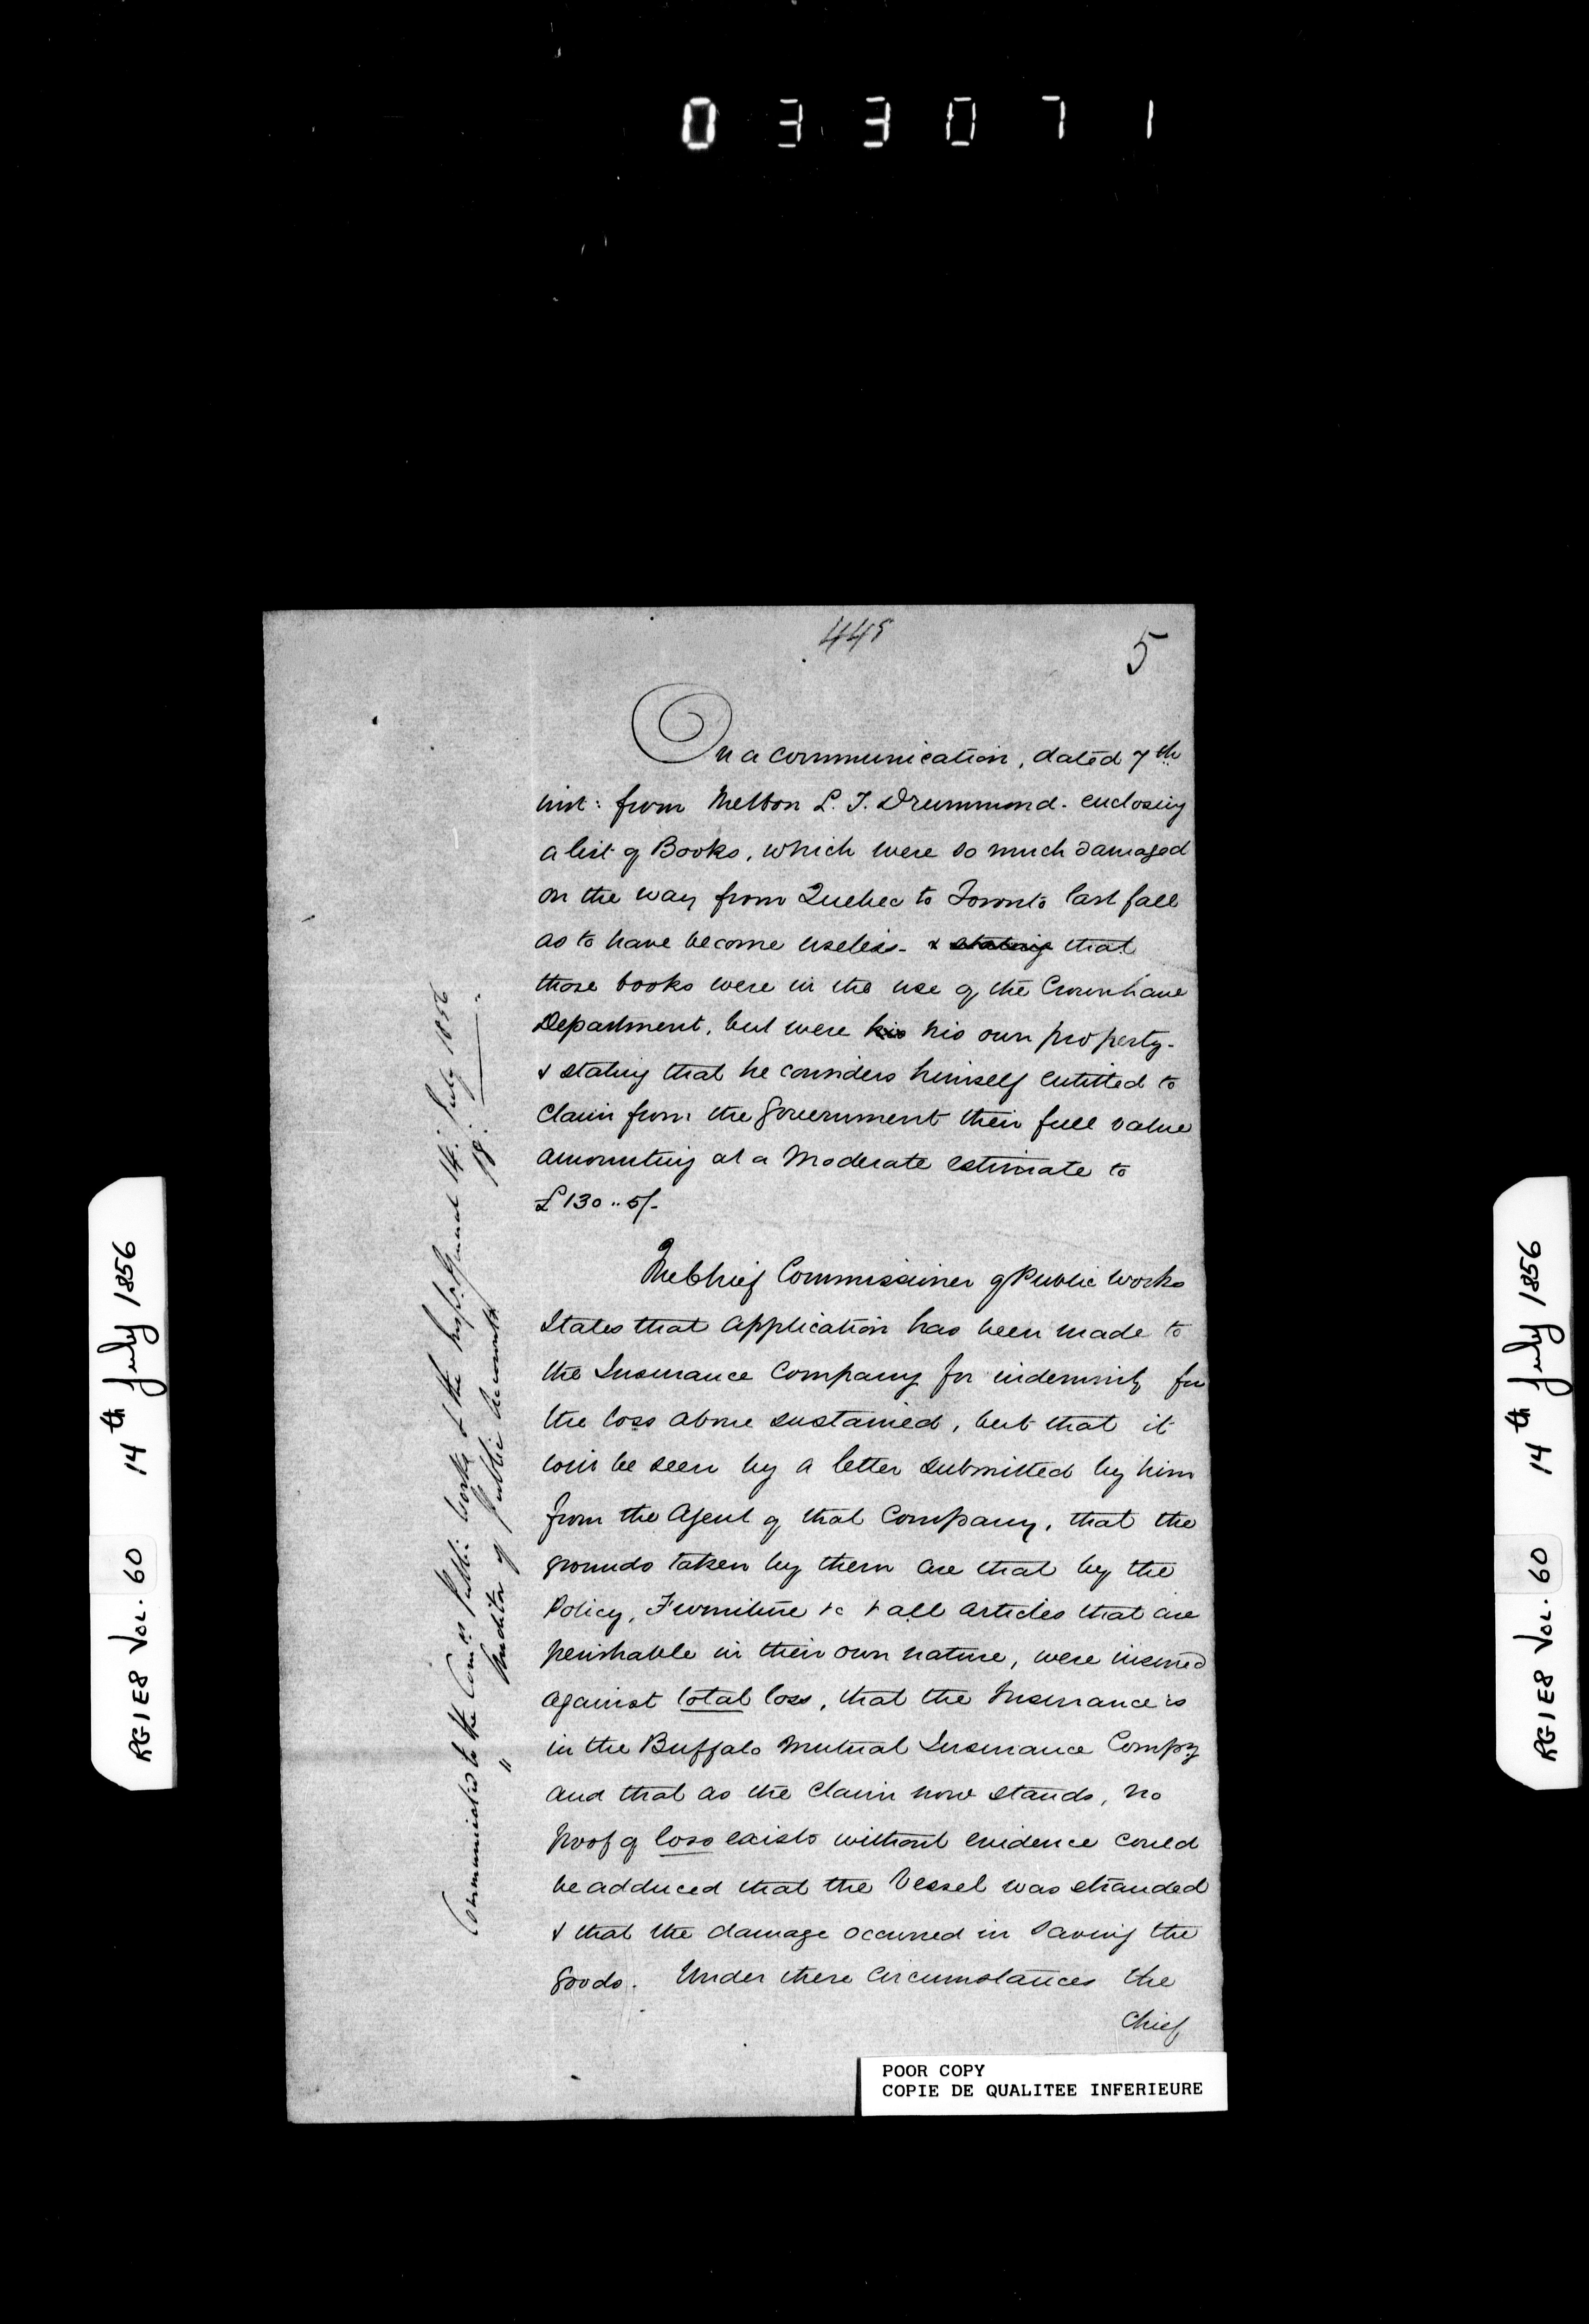 033071
445
5
On a communication, dated 7th
inst: from The Hon L. T. Drummond. enclosing
a list of Books, which were so much damaged
on the way from Quebec to Toronto last fall
as to have become useless - & stating that
those books were in the use of the Crown Law
Department, but were his his own property -
& stating that he considers himself entitled to
claim from the Government their full value
amounting at a moderate estimate to
£130..5/-
The Chief Commissioner of Public Works
States that application has been made to
the Insurance Company for indemnity for
the loss above sustained, but that it
will be seen by a letter submitted by him
from the Agent of that Company, that the
grounds taken by them are that by the
Policy, Furniture &c & all articles that are
perishable in their own nature, were insured
against total loss, that the Insurance is
in the Buffalo Mutual Insurance Compy
and that as the claim now stands, no
proof of loss exists without evidence could
be adduced that the Vessel was stranded
& that the damage occurred in saving the
goods. Under these circumstances the
Chief
Communicated to the Comrs Public Works & the Inspr. General 14. July 1856
" Auditor of Public Accounts 18. "
POOR COPY
COPIE DE QUALITEE INFERIEURE
RG1E8 VOL. 60 14th July 1856
RG1E8 VOL. 60 14th July 1856